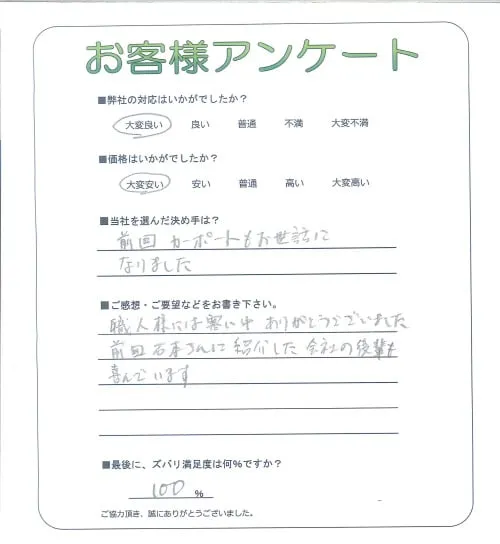 お客様アンケート
■弊社の対応はいかがでしたか？
大変良い 良い 普通 不満 大変不満
■価格はいかがでしたか？
大変安い 安い 普通 高い 大変高い
■当社を選んだ決め手は？
前回 カーポートもお世話に
なりました
■ご感想・ご要望などをお書き下さい。
職人様には寒い中 ありがとうございました
前回石本さんに紹介した会社の後輩も
喜んでいます
■最後に、ズバリ満足度は何%ですか？
100 %
ご協力頂き、誠にありがとうございました。